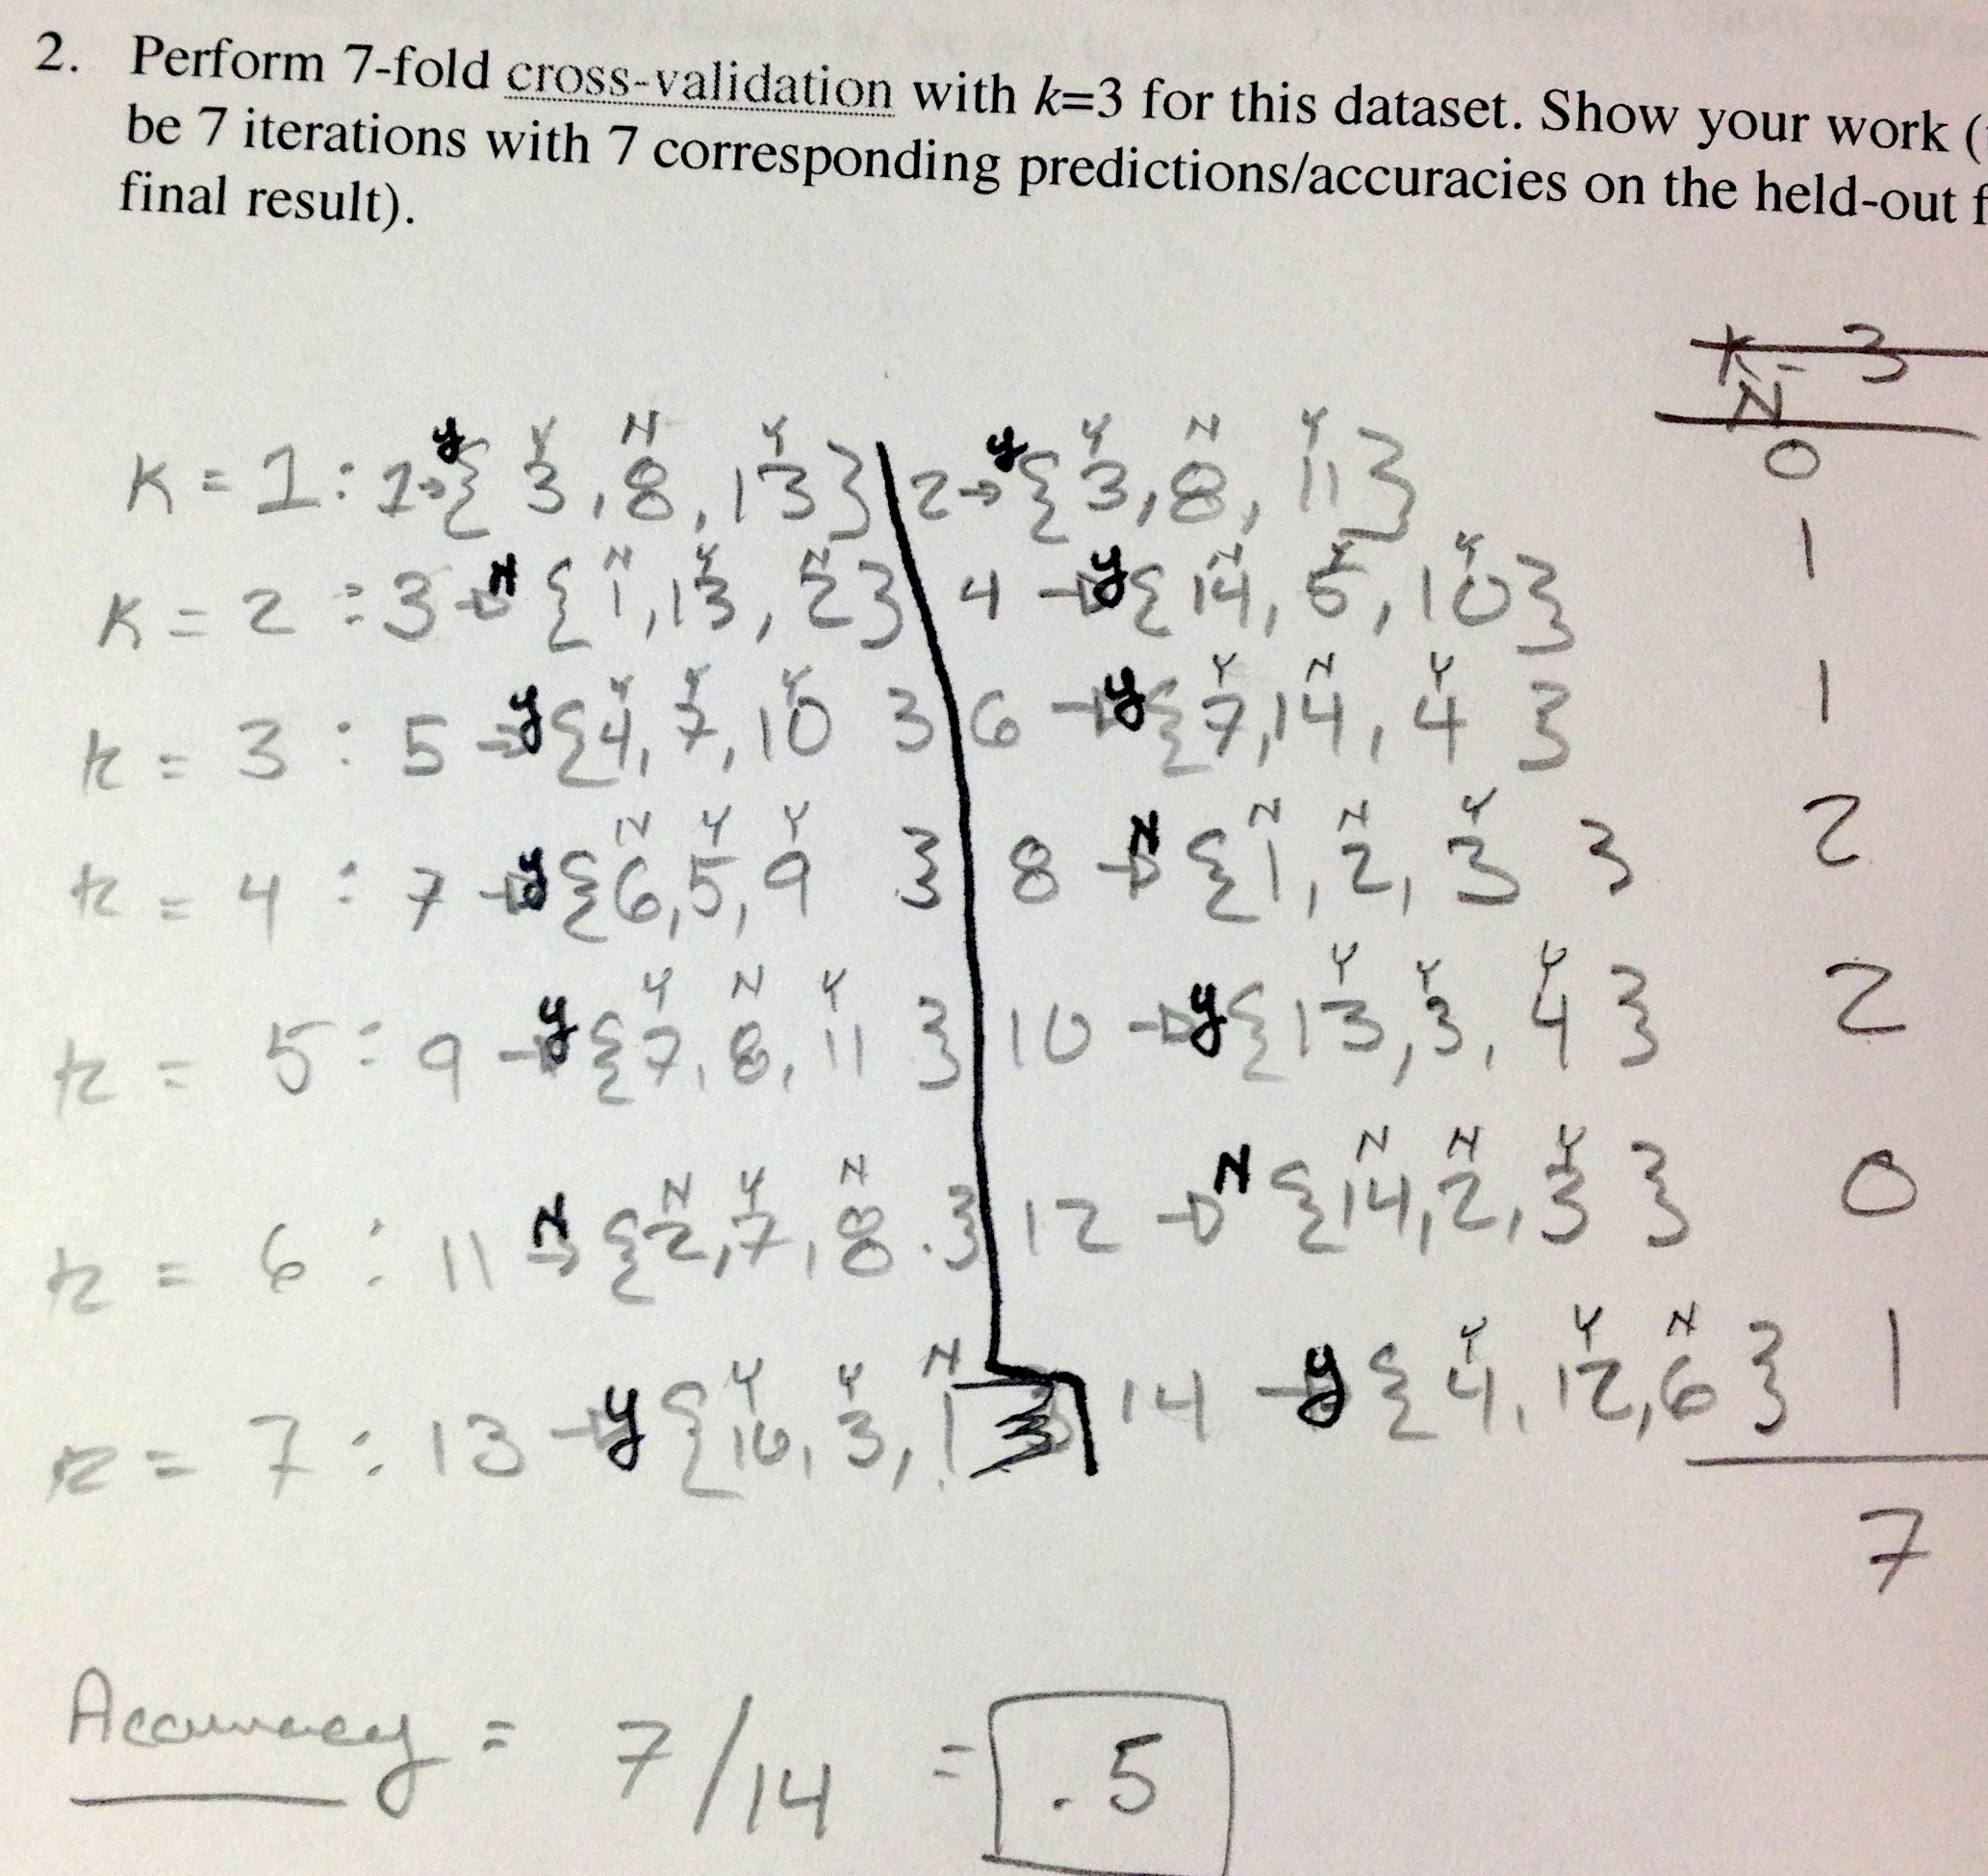 2. Perform 7-fold cross-validation with k=3 for this dataset. Show your work (
be 7 iterations with 7 corresponding predictions/accuracies on the held-out f
final result).
K = 3
N
y Y N Y y Y N Y
K = 1 : 1 → { 3, 8, 13 } 2 → { 3, 8, 11 } 0
N N Y N y N Y Y
K = 2 : 3 → { 1, 13, 2 } 4 → { 14, 5, 10 } 1
y Y Y Y y Y N Y
k = 3 : 5 → { 4, 7, 10 } 6 → { 7, 14, 4 } 1
y N Y Y N N N Y
k = 4 : 7 → { 6, 5, 9 } 8 → { 1, 2, 3 } 2
y Y N Y y Y Y Y
k = 5 : 9 → { 7, 8, 11 } 10 → { 13, 3, 4 } 2
N N Y N N N N Y
k = 6 : 11 → { 2, 7, 8 } 12 → { 14, 2, 3 } 0
y Y Y N y Y Y N
k = 7 : 13 → { 10, 3, 1 } 14 → { 4, 12, 6 } 1
7
Accuracy = 7/14 = .5